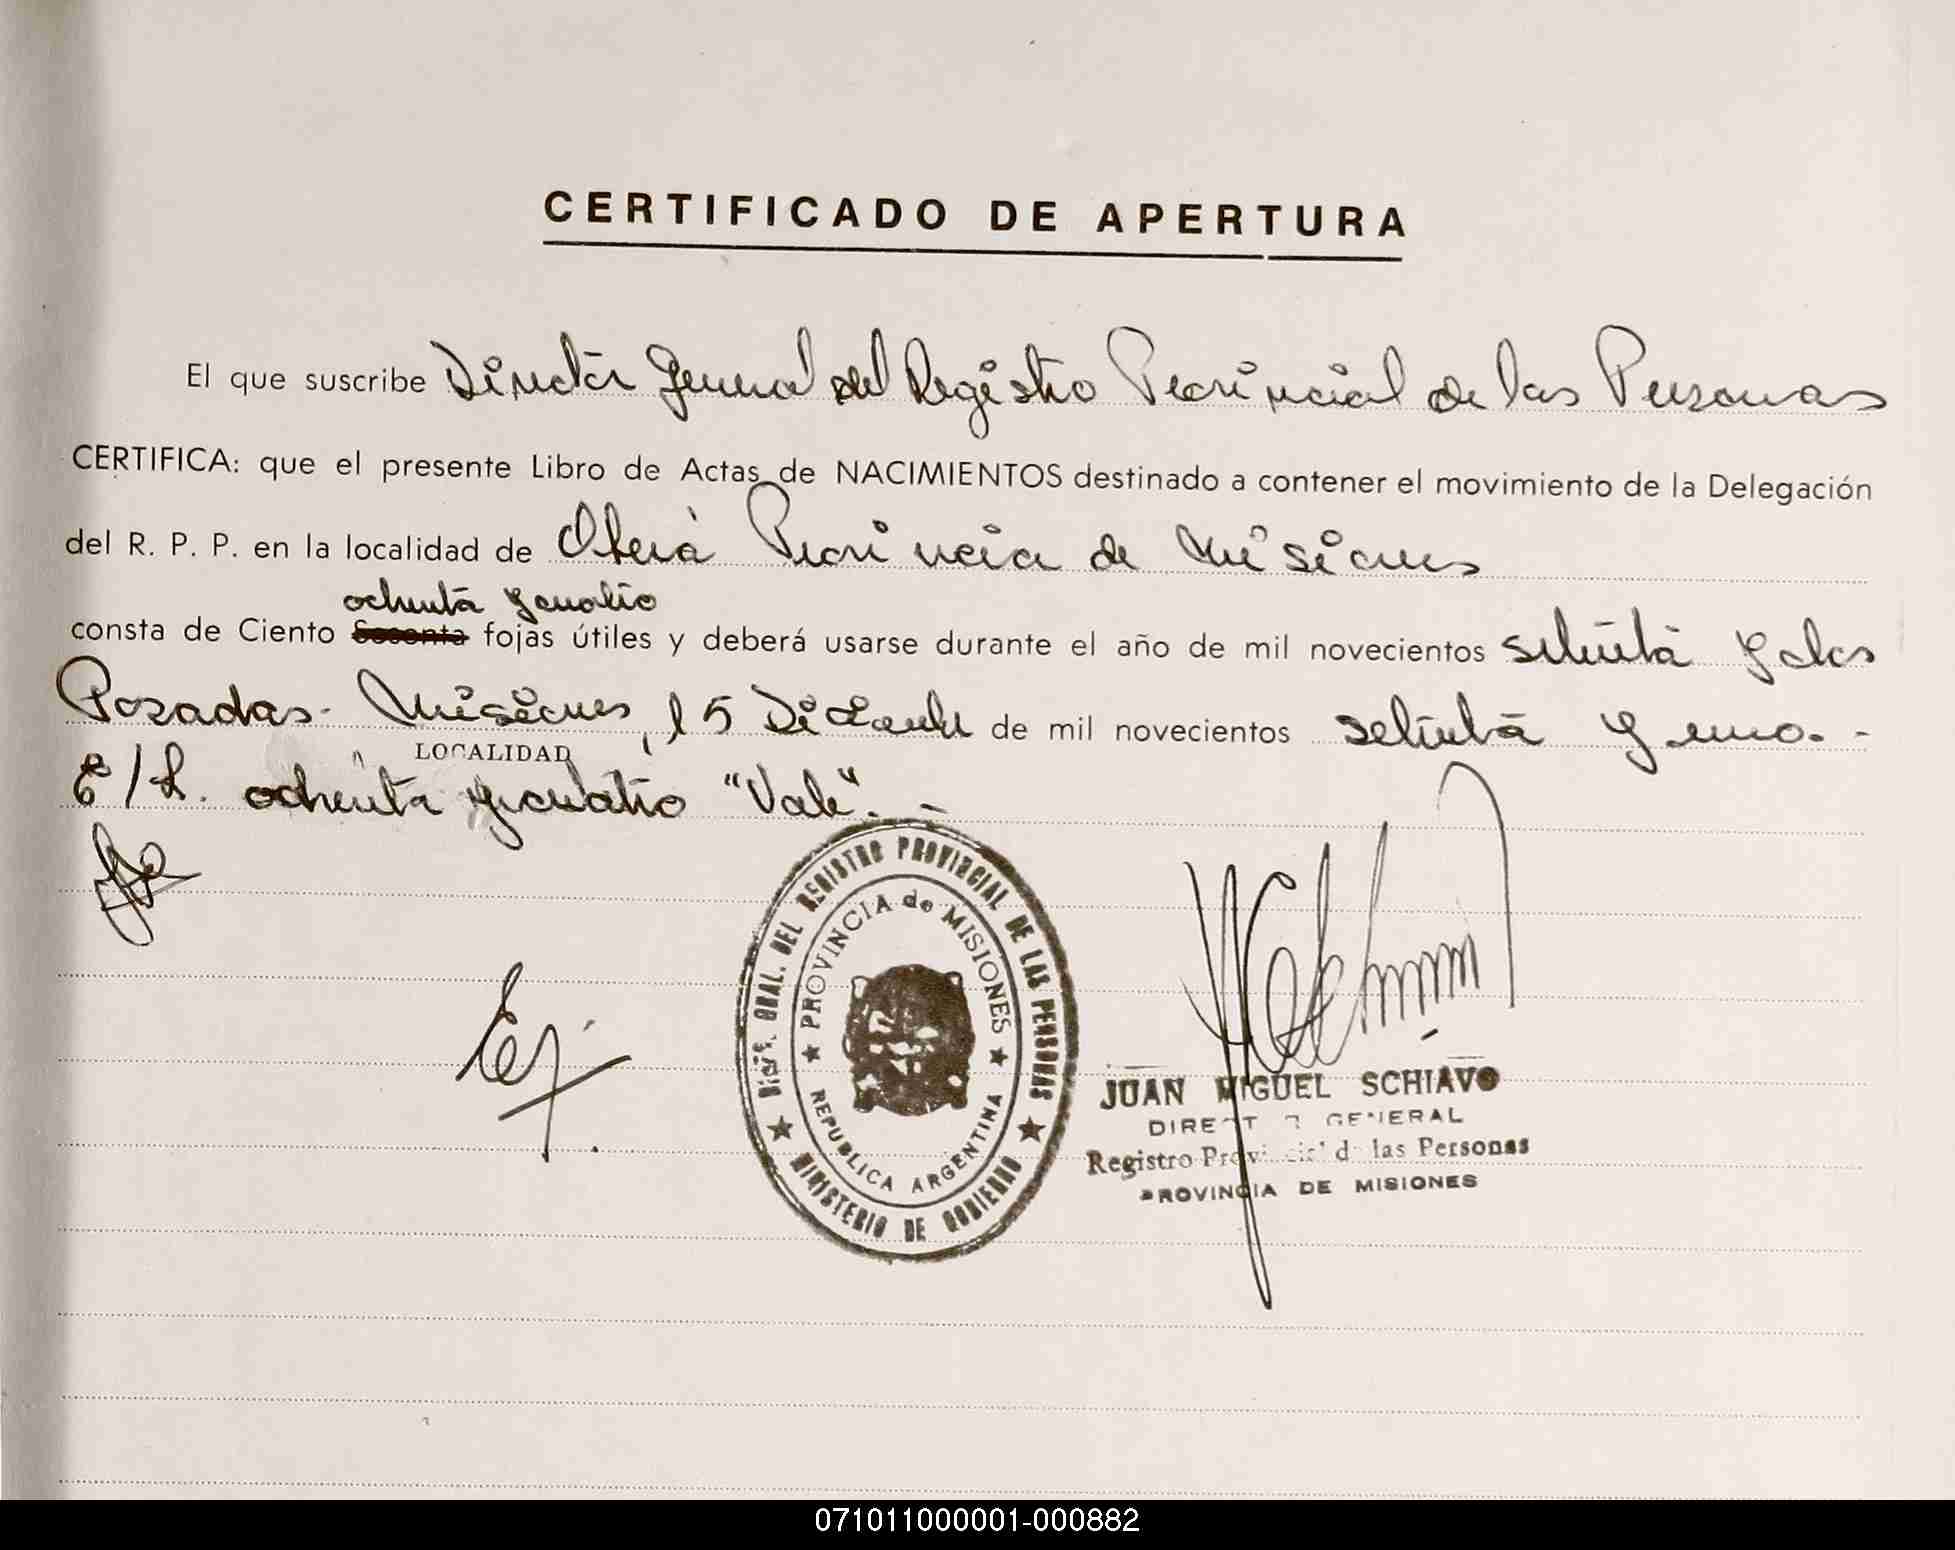 CERTIFICADO DE APERTURA
El que suscribe Director General del Registro Provincial de las Personas
CERTIFICA: que el presente Libro de Actas de NACIMIENTOS destinado a contener el movimiento de la Delegación
del R. P. P. en la localidad de Oberá Provincia de Misiones
ochenta y cuatro
consta de Ciento Sesenta fojas útiles y deberá usarse durante el año de mil novecientos setenta y dos
Posadas - Misiones, 15 Diciembre de mil novecientos setenta y uno. -
LOCALIDAD
E/L. ochenta y cuatro "Vale". -
DIREC. GRAL. DEL REGISTRO PROVINCIAL DE LAS PERSONAS
PROVINCIA de MISIONES
REPUBLICA ARGENTINA
MINISTERIO DE GOBIERNO
JUAN MIGUEL SCHIAVO
DIRECTOR GENERAL
Registro Provincial de las Personas
PROVINCIA DE MISIONES
071011000001-000882